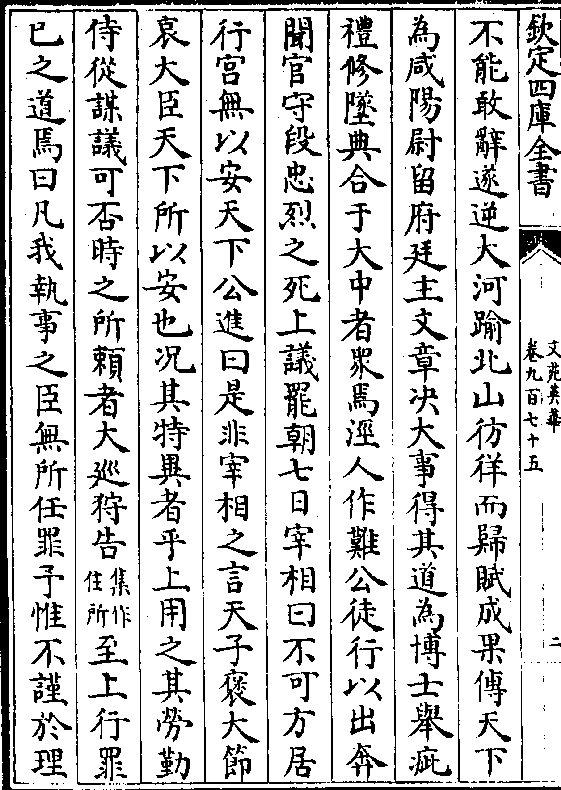 欽定四庫全書
文苑英華
卷九百七十五
二
不能敢辭遂逆大河踰北山彷徉而歸賦成果傳天下
為咸陽尉留府廷主文章决大事得其道為博士舉疵
禮修墜典合于大中者衆焉涇人作難公徒行以出奔
聞官守段忠烈之死上議罷朝七日宰相曰不可方居
行宫無以安天下公進曰是非宰相之言天子褒大節
哀大臣天下所以安也况其特異者乎上用之其勞勤
侍從謀議可否時之所頼者大廵狩告集作住所至上行罪
已之道焉曰凡我執事之臣無所任罪予惟不謹於理